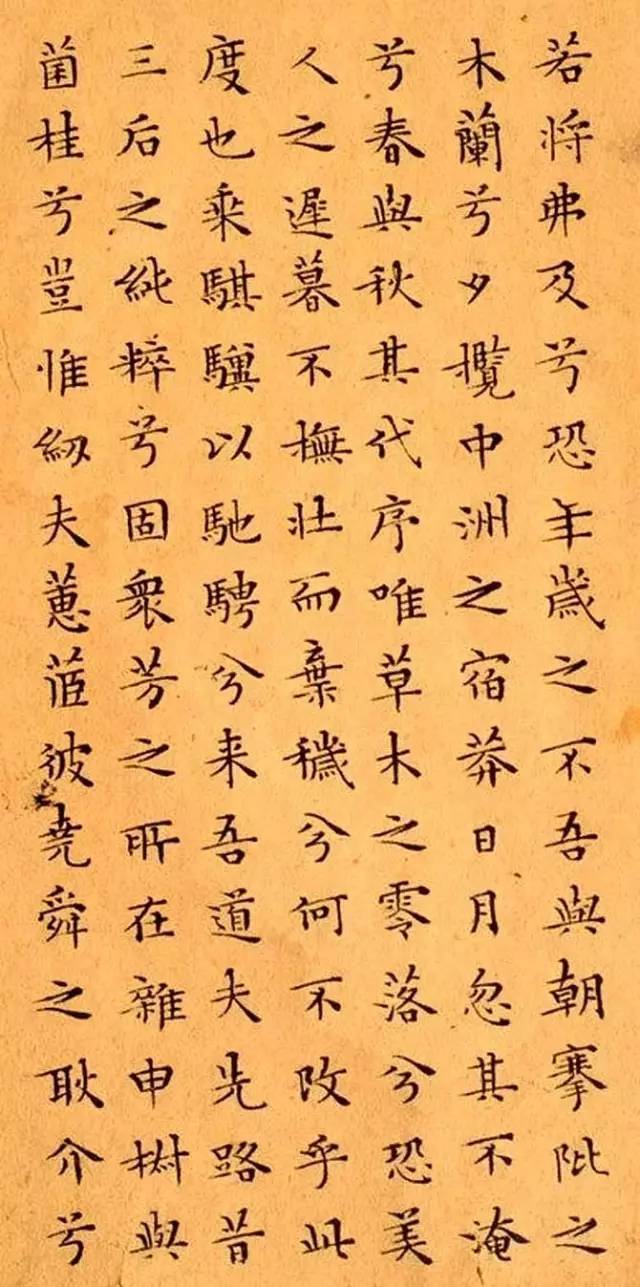 若将弗及兮恐年歲之不吾與朝搴阰之
木蘭兮夕攬中洲之宿莽日月忽其不淹
兮春與秋其代序唯草木之零落兮恐美
人之遲暮不撫壯而棄穢兮何不改乎此
度也乘騏驥以馳騁兮来吾道夫先路昔
三后之純粹兮固衆芳之所在雜申樹與
菌桂兮豈惟紉夫蕙茝彼堯舜之耿介兮